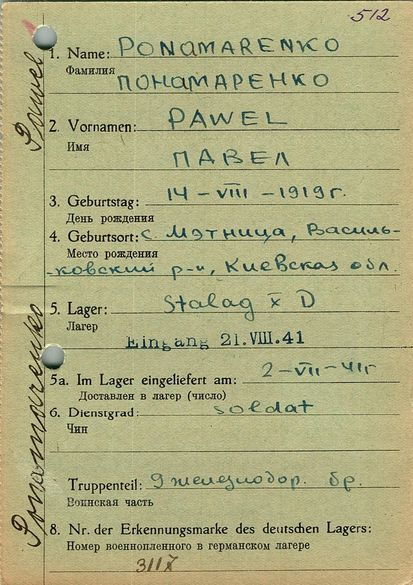 512
1. Name: PONAMARENKO
Фамилия ПОНАМАРЕНКО
2. Vornamen: PAWEL
Имя
ПАВЕЛ
3. Geburtstag: 14-VIII-1919г.
День рождения
4. Geburtsort: с. Мэтница, Василь-
Место рождения
-ковский р-н, Киевская обл.
5. Lager: Stalag X D
Лагер
Eingang 21.VIII.41
5a. Im Lager eingeliefert am: 2-VII-41г
Доставлен в лагер (число)
6. Dienstgrad: soldat
Чин
Truppenteil: 9 железнодор. бр.
Воинская часть
8. Nr. der Erkennungsmarke des deutschen Lagers:
Номер военнопленного в германском лагере
Ponamarenko Pawel